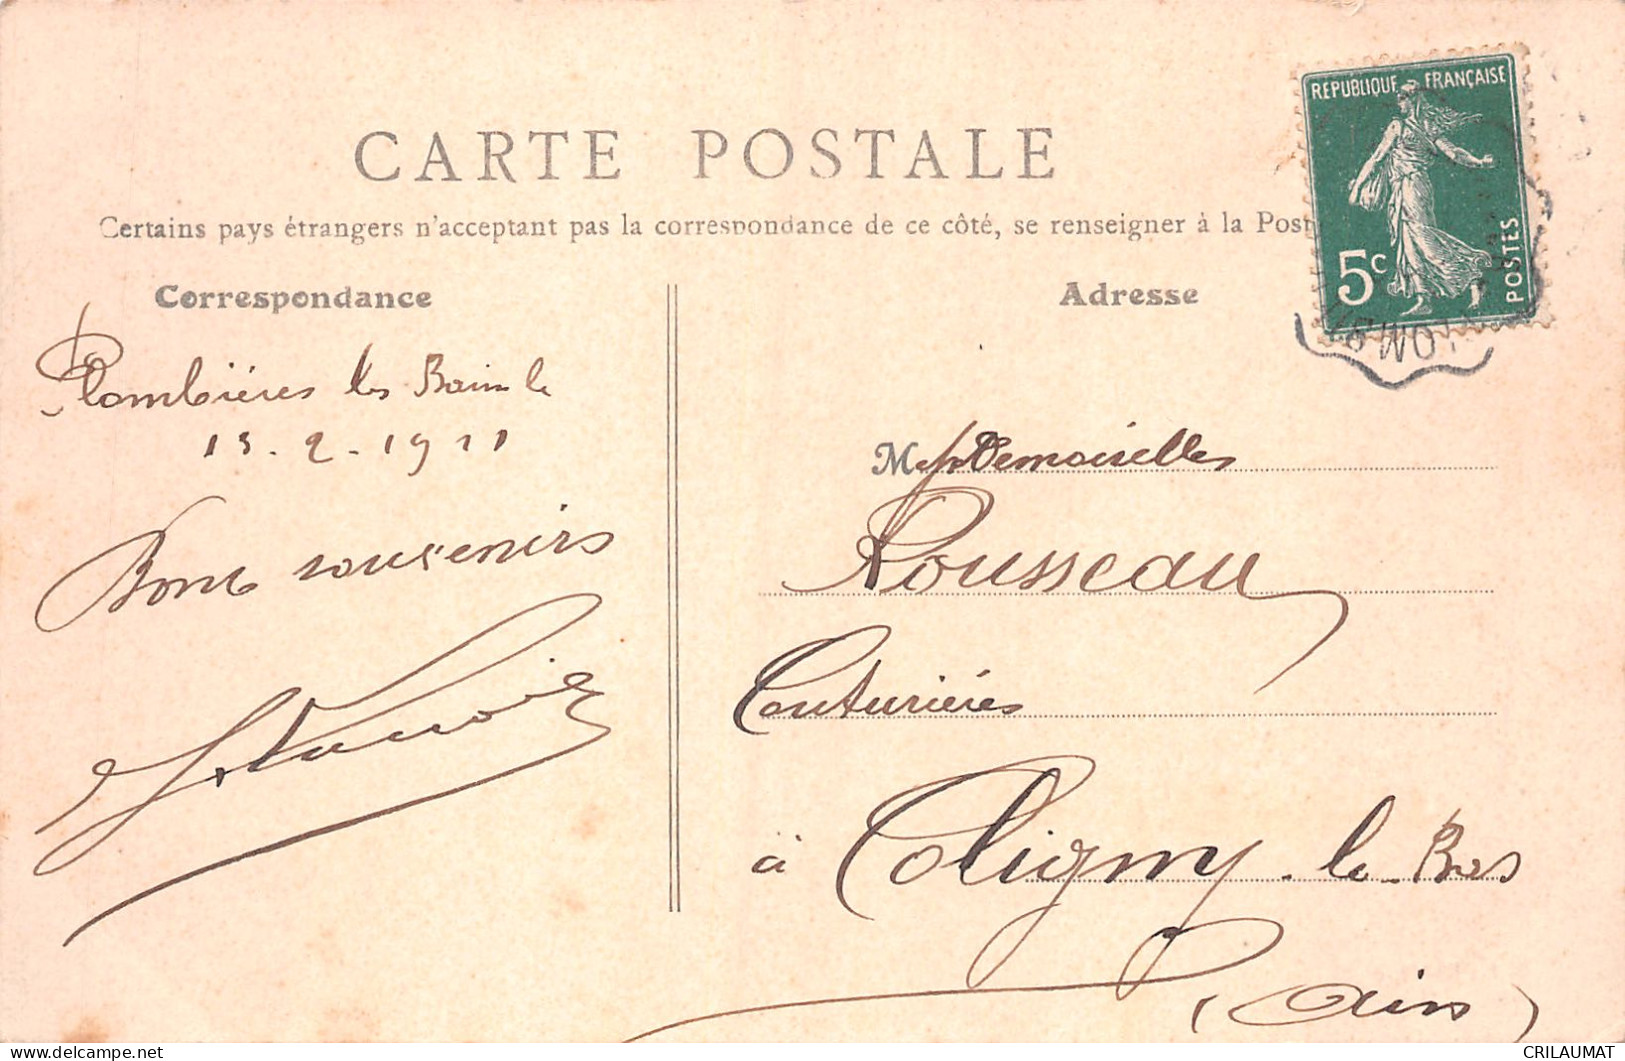 CARTE POSTALE
Certains pays étrangers n'acceptant pas la correspondance de ce côté, se renseigner à la Post
Correspondance
Plombières les Bains le
13.2.1911
Bons souvenirs
Adresse
Mesdemoiselles
Rousseau
Couturières
à Coligny-le-Bas
(Ain)
REPUBLIQUE FRANÇAISE
5c
POSTES
CRILAUMAT